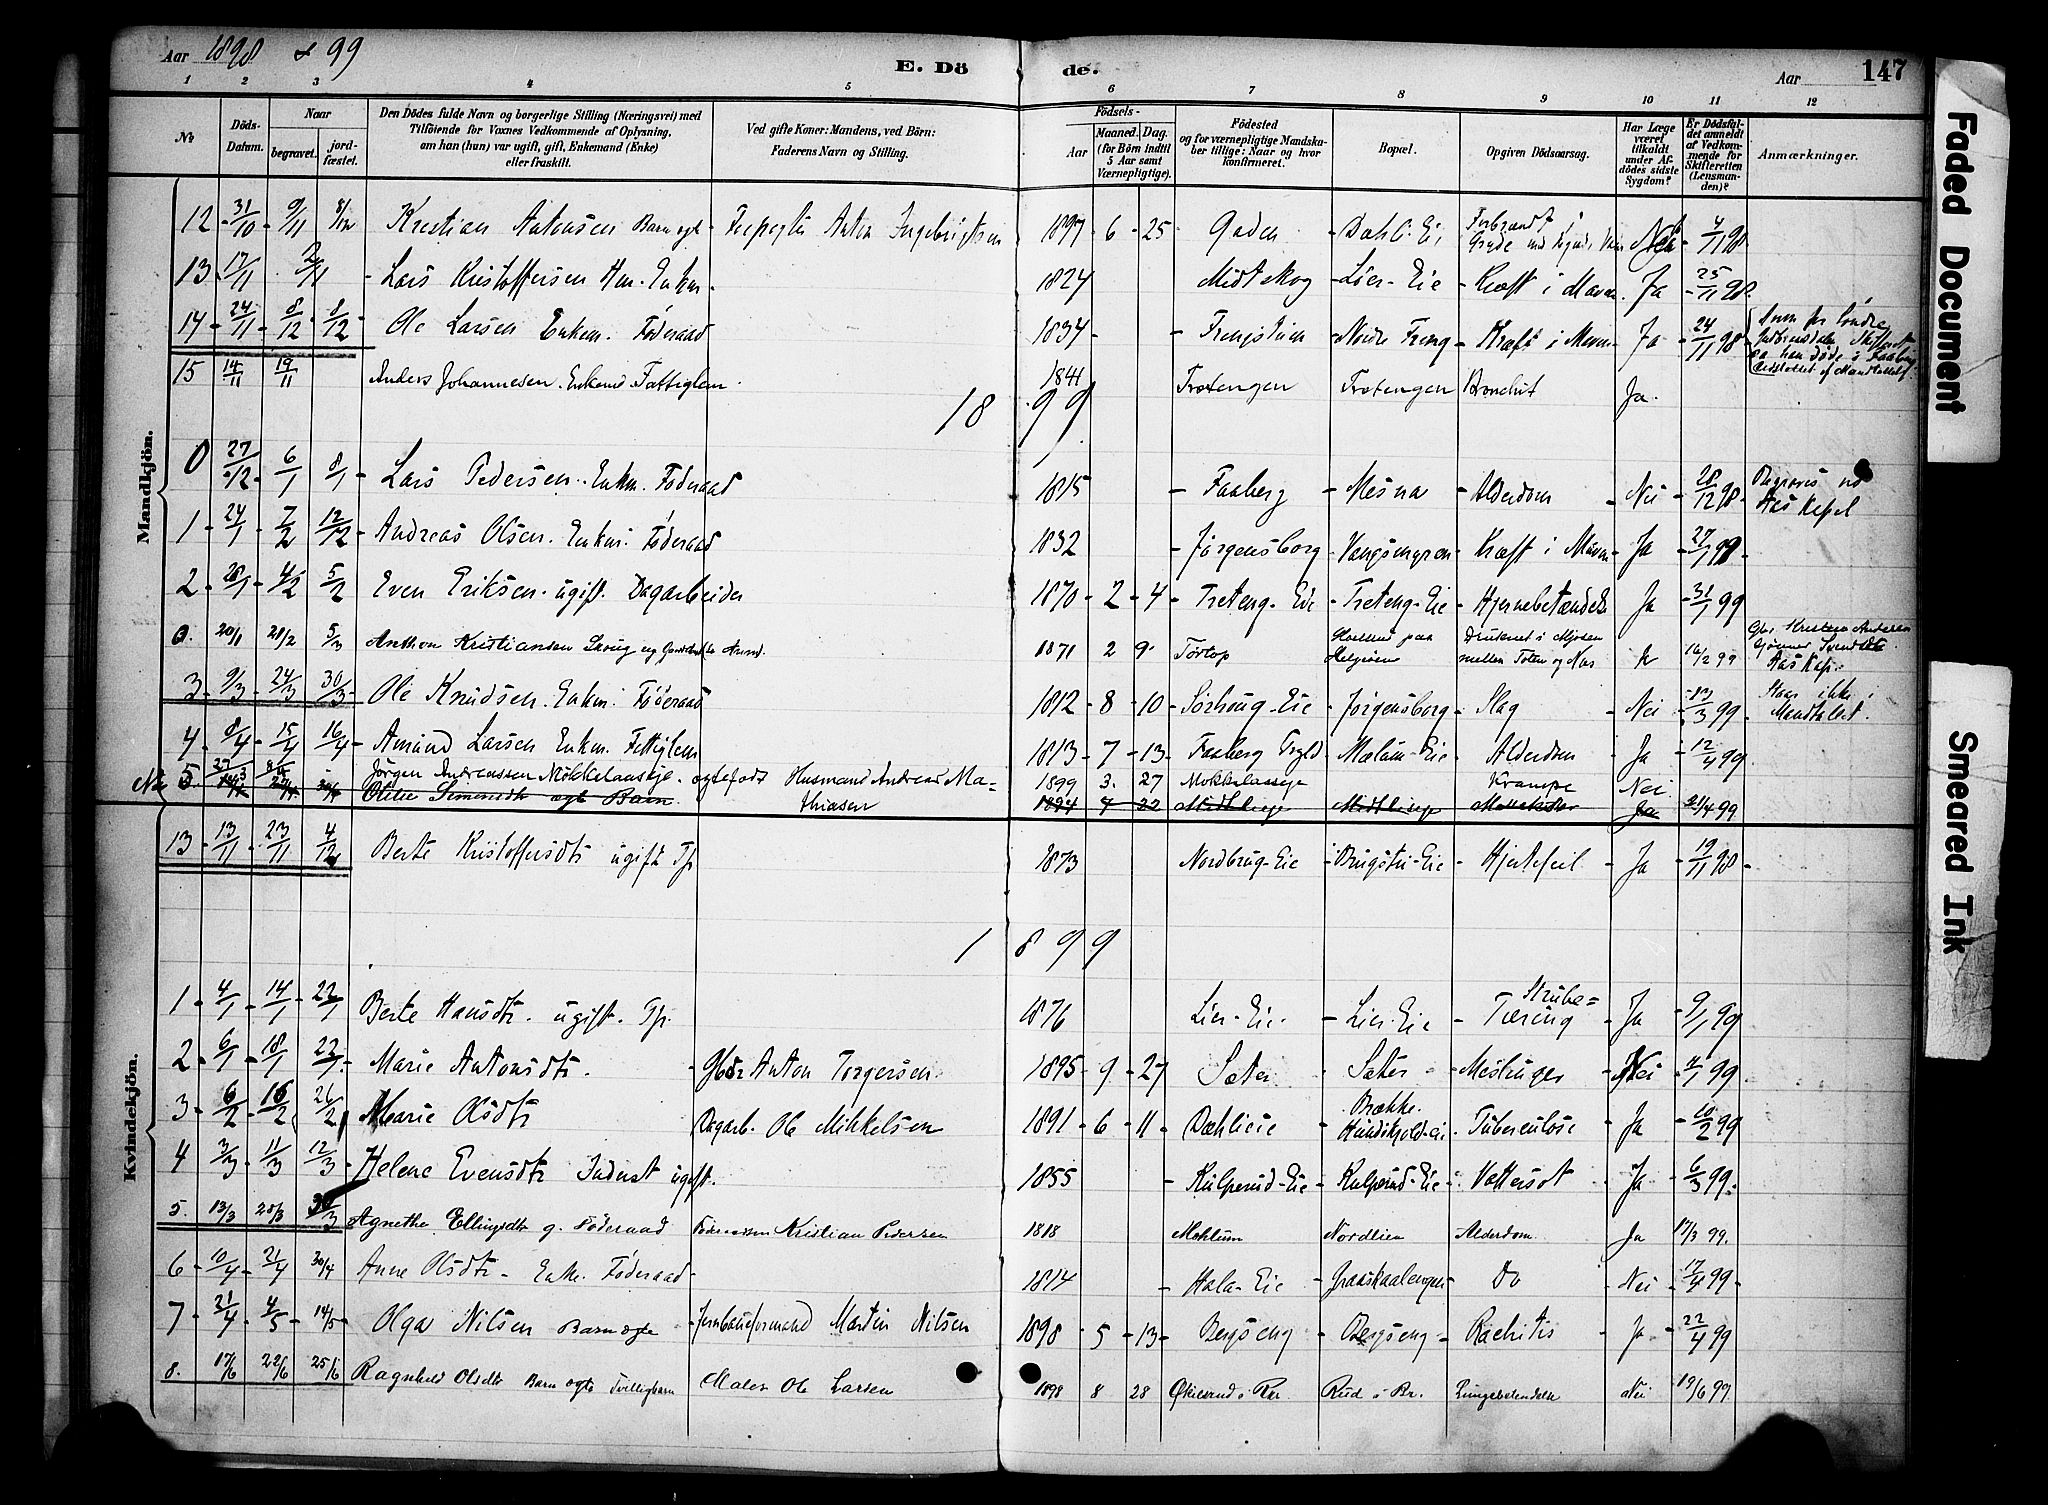 Aar 1898 & 99 E. Dö de. Aar 147
1 2 3 4 5 6 7 8 9 10 11 12
No Döds-Datum. Naar begravet. jordfæstet. Den Dödes fulde Navn og borgerlige Stilling (Næringsvei) med Tilföiende for Voxnes Vedkommende af Oplysning, om han (hun) var ugift, gift, Enkemand (Enke) eller fraskilt. Ved gifte Koner: Mandens, ved Börn: Faderens Navn og Stilling. Födsels- Aar Maaned. Dag. (for Börn indtil 5 Aar samt Værnepligtige). Födested og for værnepligtige Mandskaber tillige: Naar og hvor konfirmeret. Bopæl. Opgiven Dödsaarsag. Har Læge været tilkaldt under Afdödes sidste Sygdom? Er Dödsfaldet anmeldt af Vedkommende for Skifteretten (Lensmanden)? Anmærkninger.
Mandkjön.
12 31/10 9/11 8/12 Kristian Antonsen Barn egte Anton Ingebrigtsen 1897 6 25 Gaden Dahl. Ei Forbrændt i Gryde med Nei 4/11 98
13 17/11 2/11 Lars Kristoffersen Hm. Enkm. 1824 Midtskog Lier-Eie Kræft i Maven Ja 25/11 98
14 24/11 8/12 8/12 Ole Larsen Enkem. Föderaad 1834 Nordre Freng Kræft i Maven Ja 24/11 98
15 14/11 19/11 Anders Johannesen. Enkemd Fattiglem. 1841 Trotengen Trotengen Bronchit Ja.
18 99
0 27/12 6/1 8/1 Lars Pedersen. Enkm. Föderaad 1815 Faaberg Mesna Alderdom Nei 28/12 98 Begraves ved Aas Kapel
1 24/1 7/2 12/2 Andreas Olsen. Enkm. Föderaad 1832 Jörgensborg Kræft i Maven Ja 27/1 99
2 28/1 4/2 5/2 Even Eriksen. ugift. Dagarbeider 1870 2 4 Treteng-Eie Treteng-Eie Hjernebetændels Ja 31/1 99
0. 20/11 28/2 5/3 Anthon Kristiansen Skoug 1871 2 9 Törtop Helgöen Druknet i Mjösen mellem Toten og Nes 16/2 99 Aas Kap.
3 9/3 24/3 30/3 Ole Knudsen. Enkm. Föderaad 1812 8 10 Sörhoug-Eie Jörgensborg Slag Nei 13/3 99 Staar ikke i Mandtallet.
4 8/4 15/4 16/4 Amund Larsen Enkm. Fattiglem 1813 7 13 Faaberg Mælum-Eie Alderdom Ja 12/4 99
5 27/3 8/4 Jörgen Andreassen Mokkelasseie. egtefödt Husmand Andreas Mathiasen 1899 3. 27 Mokkelasseie Krampe Nei
Oline Simensdt egte Barn. 1894 4 22 Ja 21/4 99
Kvindekjön.
13 13/11 23/11 4/12 Berte Kristoffersdtr ugift Tp. 1873 Nordbrug-Eie Brugstu-Eie Hjertefeil Ja 19/11 98
1 899
1 4/1 14/1 22/1 Berte Hansdtr. ugift. Tp. 1876 Lier-Eie. Lier-Eie Strube= Tæring Ja 9/1 99
2 6/1 18/1 22/1 Marie Antonsdtr. Gbr Anton Torgersen 1895 9 27 Sæter Sæter Mæslinger Nei 9/1 99
3 6/2 16/2 26/2 Marie Olsdtr Dagarb. Ole Mikkelsen 1891 6 11 Dæhlieie Brække. Hundskjold-eie Tuberculose Ja 10/2 99
4 3/3 11/3 12/3 Helene Evensdtr Indust ugift. 1855 Kulperud-Eie Kulperud-Eie Vattersot Ja 6/3 99.
5. 13/3 28/3 30/3 Agnethe Ellingsdtr g. Föderaad Kristian Pedersen 1818 Mehlum Nordlien Alderdom. Ja 17/3 99.
6 10/4 21/4 30/4 Anne Olsdtr Enke. Föderaad 1814 Hala-Eie Graaskaalengen Do Nei 17/4 99
7 21/4 4/5 14/5 Olga Nilsen Barn egte Jernbaneformand Martin Nilsen 1898 5 13 Bergseng Bergseng Rachitis Ja 22/4 99
8. 17/6 22/6 25/6 Ragnhild Olsdtr Barn egte Tvillingbarn Maler Ole Larsen 1898 8 28 Rud i Br. Lungebetendelse Nei 19/6 99.
Faded Document
Smeared Ink